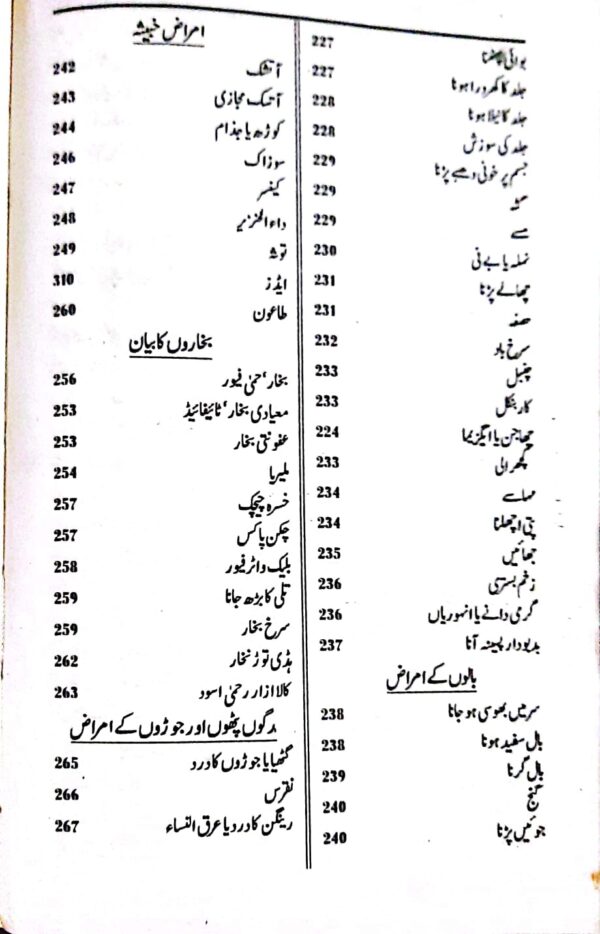 بوائی پھٹنا 227
جلد کا کھردرا ہونا 227
جلد کا نیلا ہونا 228
جلد کی سوزش 228
جسم پر خونی دھبے پڑنا 229
229
مسے 229
نملہ یا بے نی 230
چھالے پڑنا 231
231
سرخ باد 232
چنبل 233
کاربنکل 233
چھاجن یا ایگزیما 224
کچھرالی 233
مہاسے 234
پتی اچھلنا 234
چھائیں 235
زخم بستری 236
گرمی دانے یا انہوریاں 236
بدبودار پسینہ آنا 237
بالوں کے امراض
سر میں بھوسی ہو جانا 238
بال سفید ہونا 238
بال گرنا 239
گنج 240
جوئیں پڑنا 240
امراض خبیثہ
آتشک 242
آتشک مجازی 243
کوڑھ یا جذام 244
سوزاک 246
کینسر 247
داء الخنزیر 248
توثہ 249
ایڈز 310
طاعون 260
بخاروں کا بیان
بخار، حمیٰ فیور 256
معیادی بخار، ٹائیفائیڈ 253
عفونتی بخار 253
ملیریا 254
خسرہ چیچک 257
چکن پاکس 257
بلیک واٹر فیور 258
تلی کا بڑھ جانا 259
سرخ بخار 259
ہڈی توڑ بخار 262
کالا ازار رحمیٰ اسود 263
رگوں پٹھوں اور جوڑوں کے امراض
گٹھیا یا جوڑوں کا درد 265
نقرس 266
رینگن کا درد یا عرق النساء 267